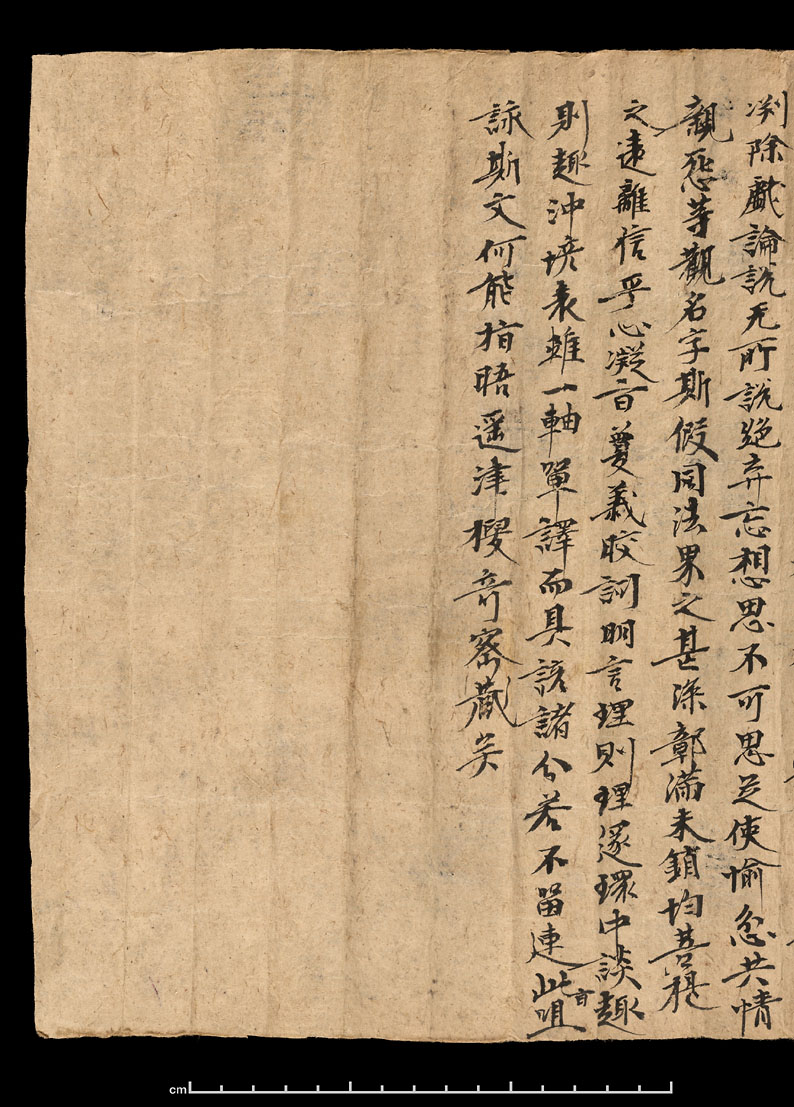 除戲論說无所說絕弃忘想思不可思足使愉忿共情
親惌等觀名字斯假同法界之甚深彰滿未鎖均菩提
之遠離信乎心凝旨敻義皎詞明言理則理邃環中談趣
則趣沖垓表雖一軸單譯而具該諸分若不留連此旨咀
詠斯文何能指晤遥津搜奇密藏矣
cm